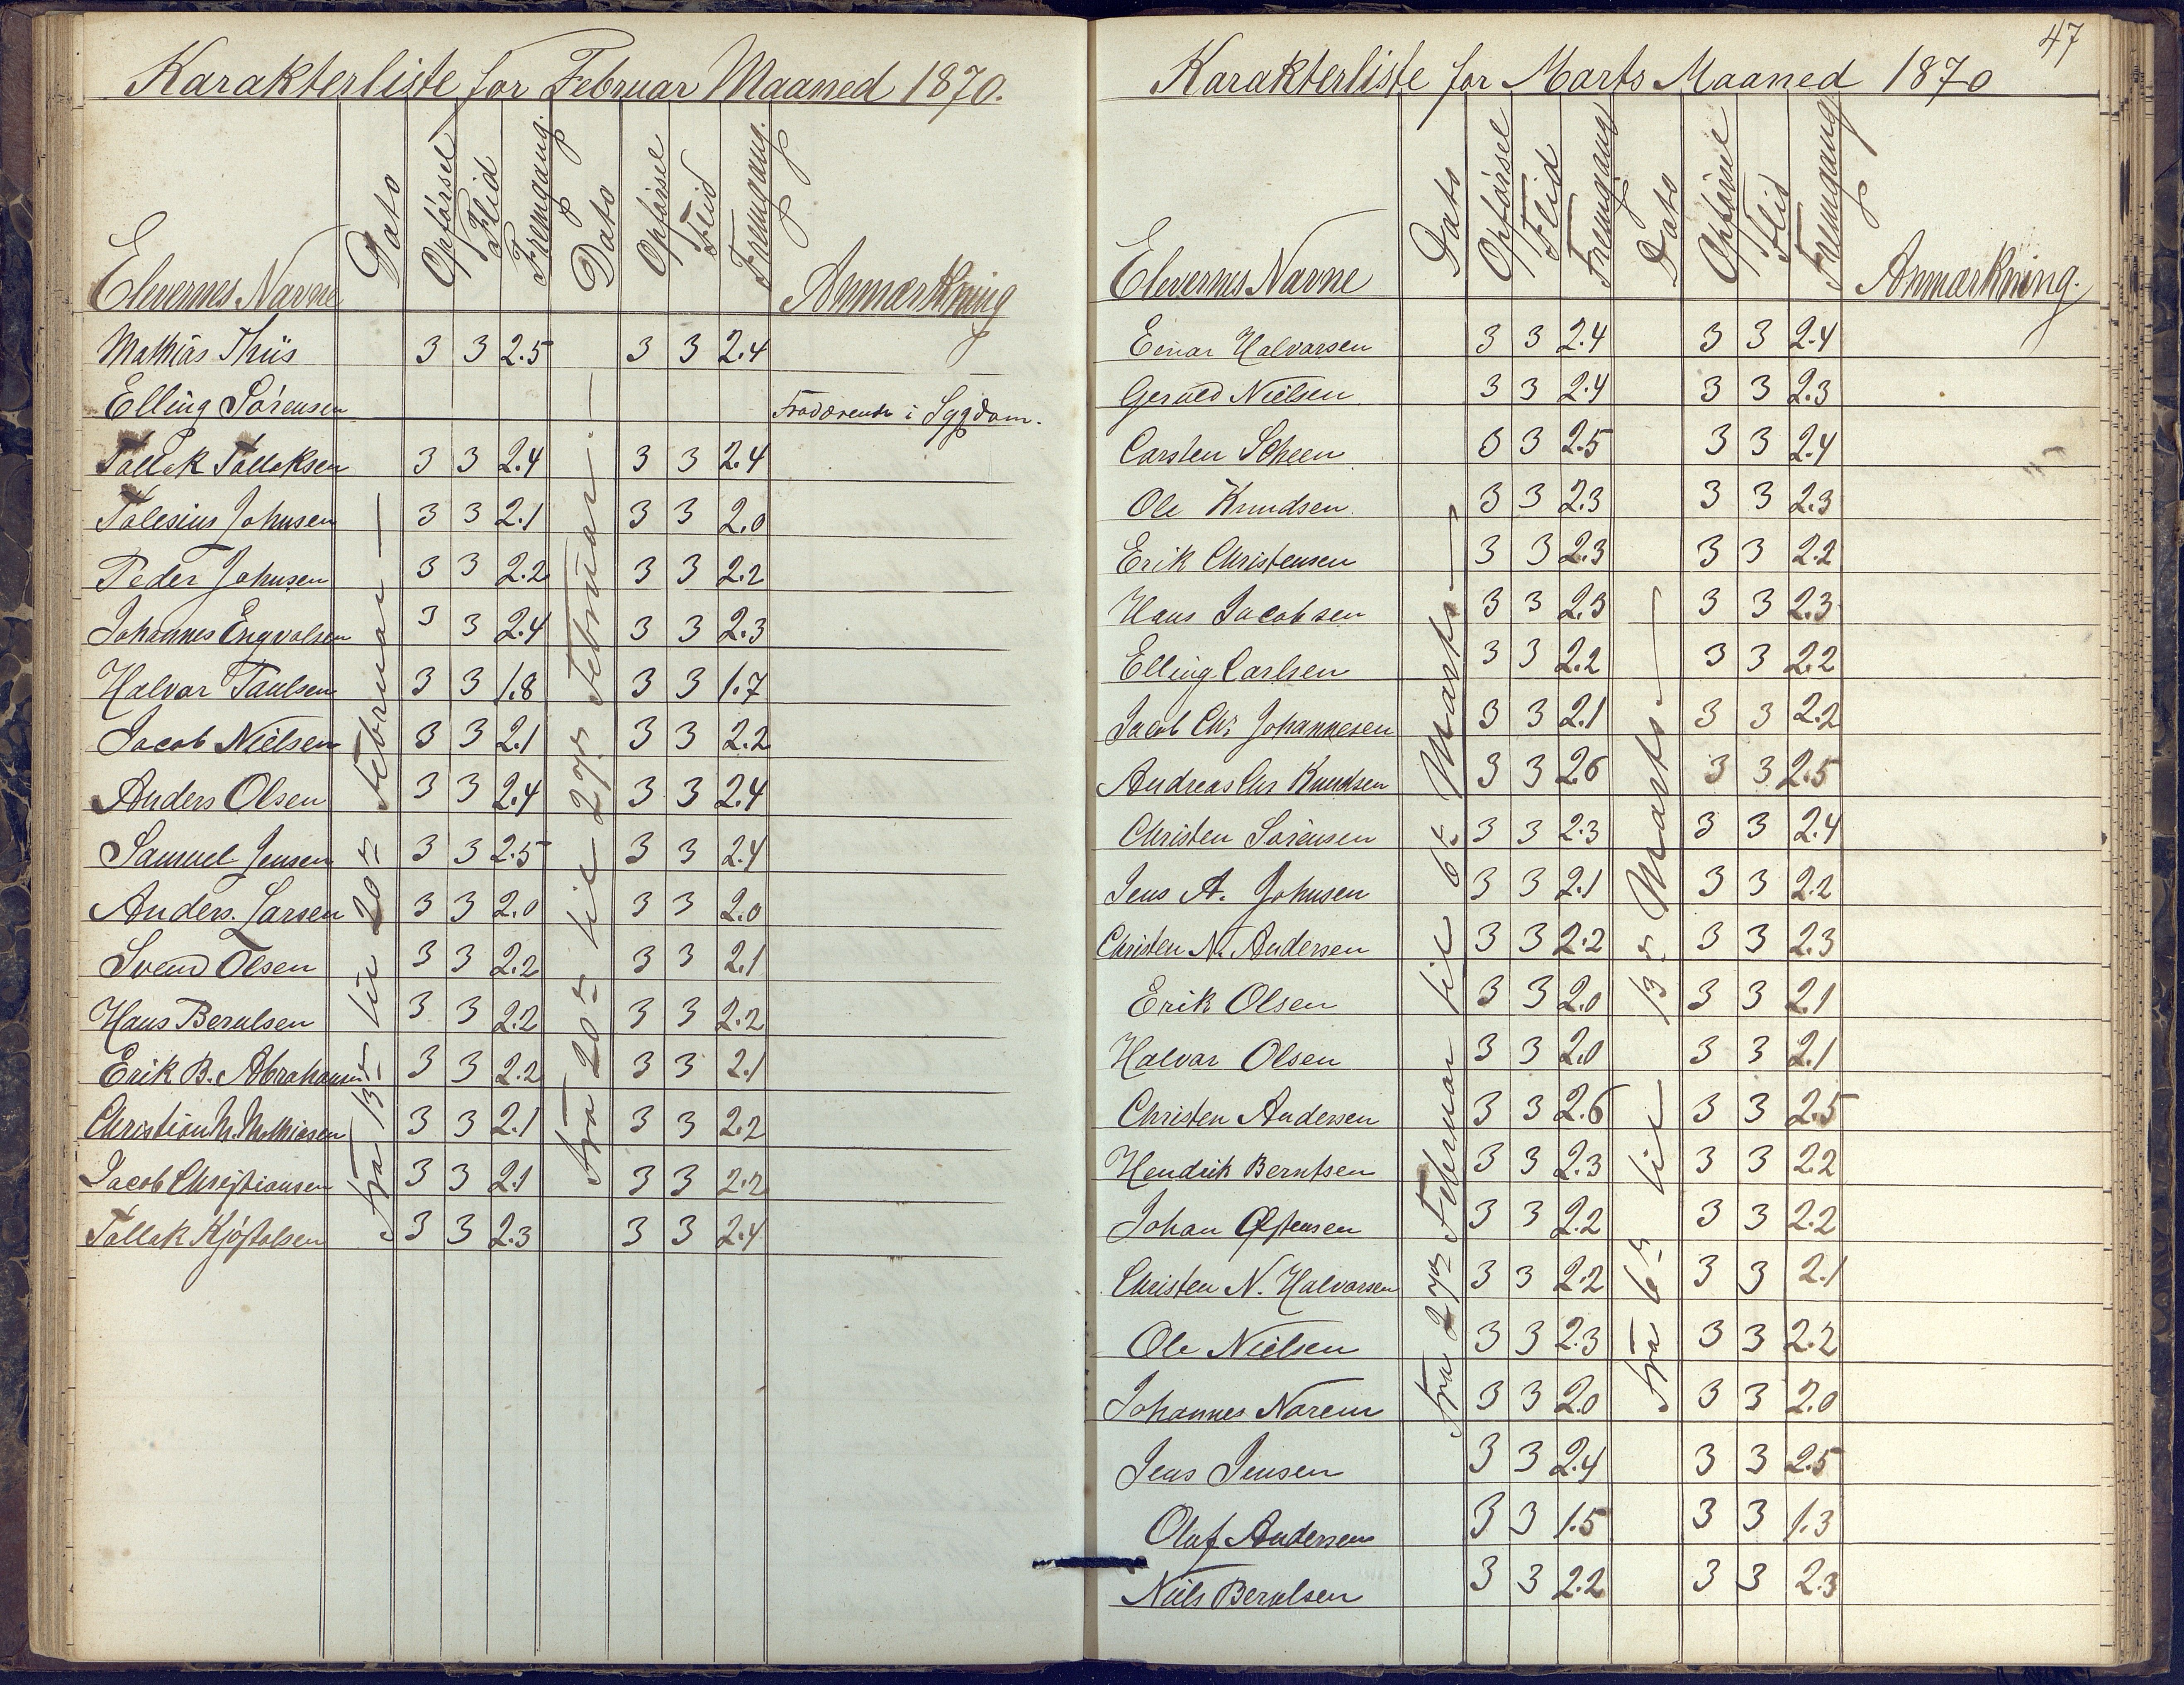 Karakterliste for Februar Maaned 1870.
Elevernes Navne Dato Opførsel Flid Fremgang. Dato Opførsel Flid Fremgang. Anmærkning
fra 13de til 20de Februar —
fra 20de til 27de Februar. —
Mathias Thiis 3 3 2.5 3 3 2.4
Elling Sørensen Fraværende i Sygdom.
Tallak Tallaksen 3 3 2.4 3 3 2.4
Talesius Johnsen 3 3 2.1 3 3 2.0
Peder Johnsen 3 3 2.2 3 3 2.2
Johannes Engvalsen 3 3 2.4 3 3 2.3
Halvor Paulsen 3 3 1.8 3 3 1.7
Jacob Nielsen 3 3 2.1 3 3 2.2
Anders Olsen 3 3 2.4 3 3 2.4
Samuel Jensen 3 3 2.5 3 3 2.4
Anders. Larsen 3 3 2.0 3 3 2.0
Svend Olsen 3 3 2.2 3 3 2.1
Hans Berulsen 3 3 2.2 3 3 2.2
Erik B. Abrahamsen 3 3 2.2 3 3 2.1
Christian M. Mathiasen 3 3 2.1 3 3 2.2
Jacob Christiansen 3 3 2.1 3 3 2.2
Tallak Kjøstolsen 3 3 2.3 3 3 2.4
47
Karakterliste for Marts Maaned 1870
Elevernes Navne Dato Opførsel Flid Fremgang Dato Opførsel Flid Fremgang Anmærkning.
fra 27de Februar til 6te Marts. —
fra 6te til 13de Marts. —
Einar Halvorsen 3 3 2.4 3 3 2.4
Geruld Nielsen 3 3 2.4 3 3 2.3
Carsten Scheen 3 3 2.5 3 3 2.4
Ole Knudsen. 3 3 2.3 3 3 2.3
Erik Christensen 3 3 2.3 3 3 2.2
Hans Jacobsen 3 3 2.3 3 3 2.3
Elling Carlsen 3 3 2.2 3 3 2.2
Jacob Chr Johannesen 3 3 2.1 3 3 2.2
Andreas Chr Knudsen 3 3 2.6 3 3 2.5
Christen Sørensen 3 3 2.3 3 3 2.4
Jens A. Johnsen 3 3 2.1 3 3 2.2
Christen N. Andersen 3 3 2.2 3 3 2.3
Erik Olsen 3 3 2.0 3 3 2.1
Halvor Olsen 3 3 2.0 3 3 2.1
Christen Andersen 3 3 2.6 3 3 2.5
Hendrik Berntsen 3 3 2.3 3 3 2.2
Johan Østensen 3 3 2.2 3 3 2.2
Christen N. Halvorsen 3 3 2.2 3 3 2.1
Ole Nielsen 3 3 2.3 3 3 2.2
Johannes 3 3 2.0 3 3 2.0
Jens Jensen 3 3 2.4 3 3 2.5
Oluf Andersen 3 3 1.5 3 3 1.3
Niels Berulsen 3 3 2.2 3 3 2.3